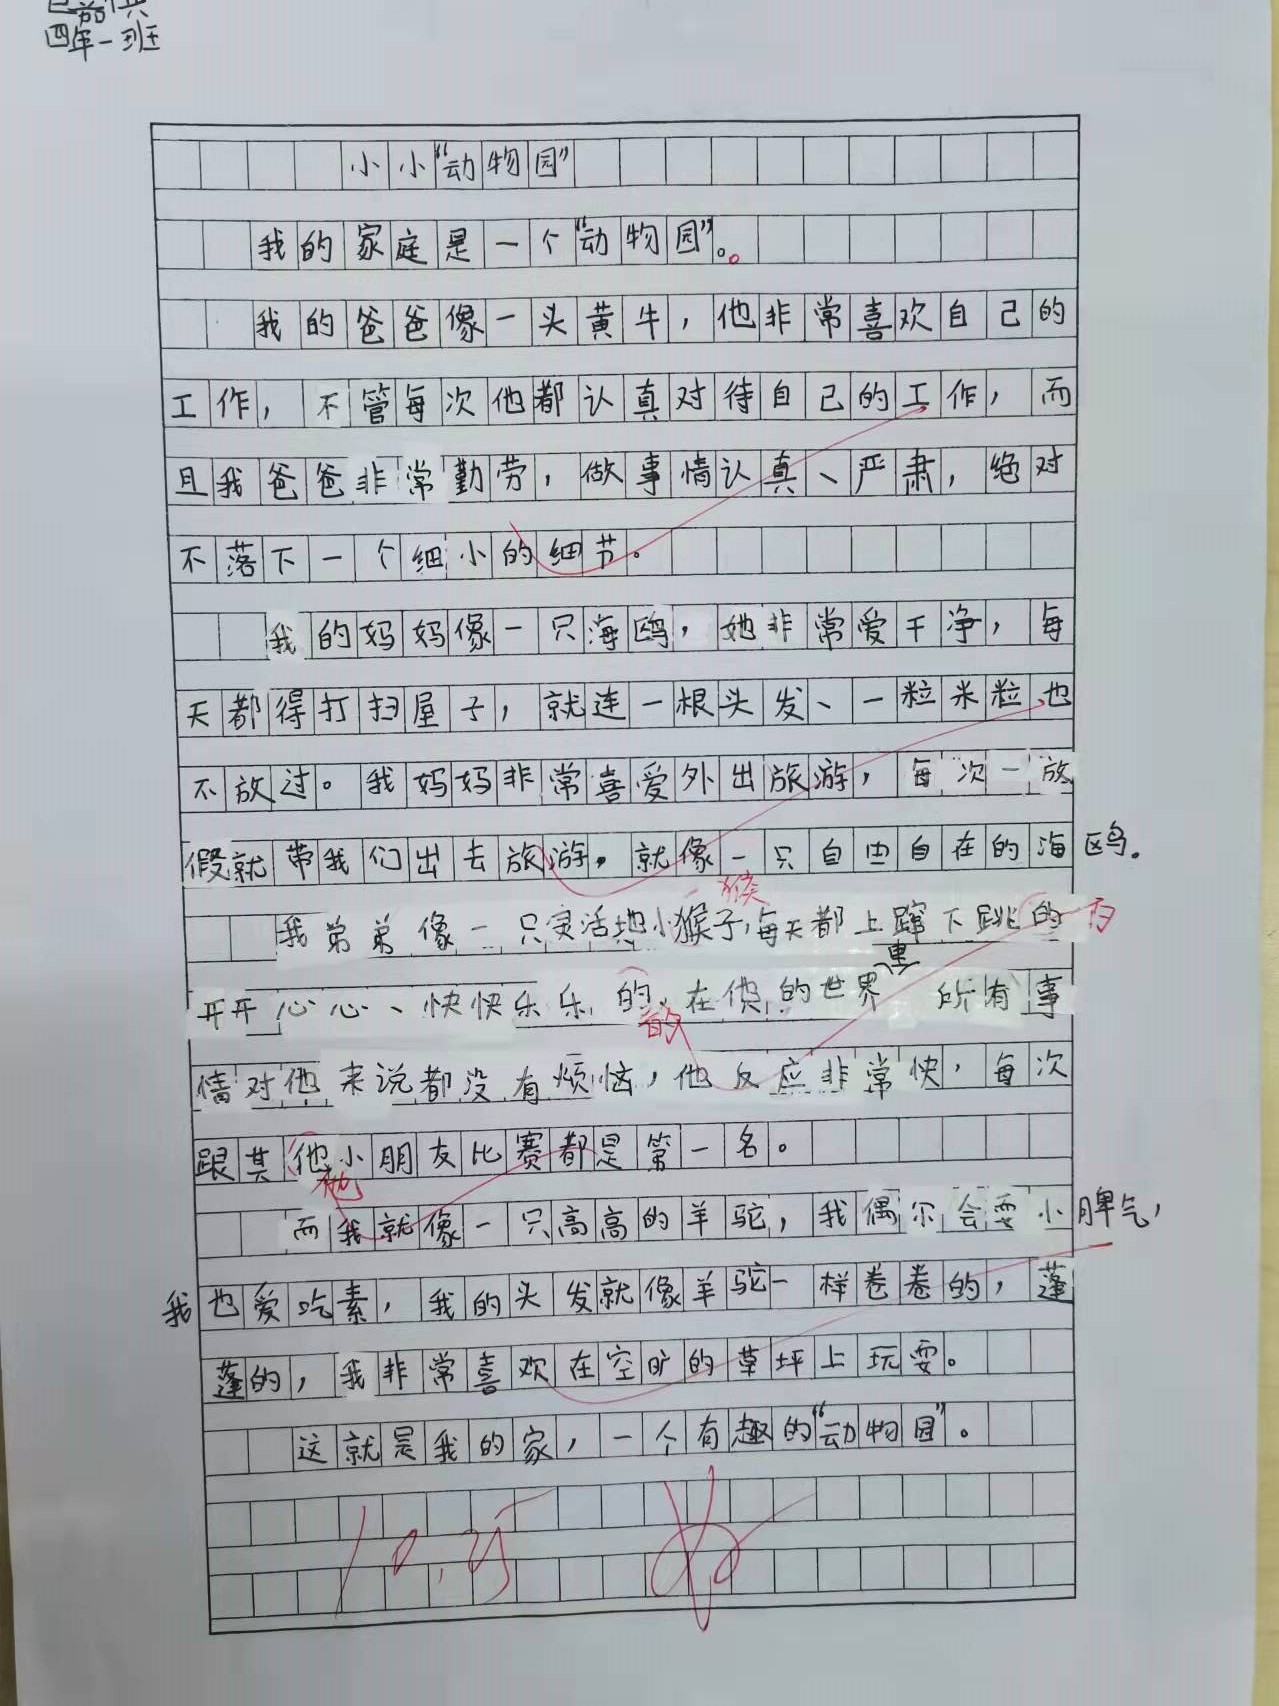 四年一班
小小“动物园”
我的家庭是一个“动物园”。
我的爸爸像一头黄牛，他非常喜欢自己的
工作，不管每次他都认真对待自己的工作，而
且我爸爸非常勤劳，做事情认真、严肃，绝对
不落下一个细小的细节。
我的妈妈像一只海鸥，她非常爱干净，每
天都得打扫屋子，就连一根头发、一粒米粒也
不放过。我妈妈非常喜爱外出旅游，每次一放
假就带我们出去旅游。就像一只自由自在的海鸥。
猴
我弟弟像一只灵活地小猴子，每天都上蹿下跳的
开开心心、快快乐乐的，在他的世界里所有事
的
情对他来说都没有烦恼，他反应非常快，每次
跟其他小朋友比赛都是第一名。
他
而我就像一只高高的羊驼，我偶尔会耍小脾气，
我也爱吃素，我的头发就像羊驼一样卷卷的，蓬
蓬的，我非常喜欢在空旷的草坪上玩耍。
这就是我的家，一个有趣的“动物园”。
10.25